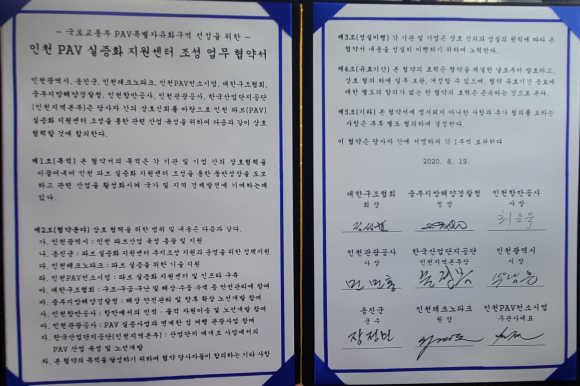 - 국토교통부 PAV특별자유화구역 선정을 위한 -
인천 PAV 실증화 지원센터 조성 업무 협약서
인천광역시, 옹진군, 인천테크노파크, 인천PAV컨소시엄, 대한구조협회,
중부지방해양경찰청, 인천항만공사, 인천관광공사, 한국산업단지공단
(인천지역본부)은 당사자 간의 상호신뢰를 바탕으로 인천 파브(PAV)
실증화 지원센터 조성을 통한 관련 산업 육성을 위하여 다음과 같이 상호
협력할 것에 합의한다.
제1조(목적) 본 협약서의 목적은 각 기관 및 기업 간의 상호협력을
이끌어내어 인천 파브 실증화 지원센터 조성을 통한 동반성장을 도모
하고 관련 산업을 활성화시켜 국가 및 지역 경제발전에 기여하는데
있다.
제2조(협약분야) 상호 협력을 위한 범위 및 내용은 다음과 같다.
가. 인천광역시 : 인천 파브산업 육성 총괄 및 지원
나. 옹진군 : 파브 실증화 지원센터 부지조성 지원과 운영을 위한 정책지원
다. 인천테크노파크 : 파브 실증을 위한 기술 지원
라. 인천PAV컨소시엄 : 파브 실증화 지원센터 및 인프라 구축
마. 대한구조협회 : 구조·구급·구난 및 해상·수중 수색 등 안전관리에 참여
바. 중부지방해양경찰청 : 해상 안전관리 및 항로 확장 노선개발 참여
사. 인천항만공사 : 항만에서의 인적·물적 자원이송 및 노선개발 참여
아. 인천관광공사 : PAV 실증사업과 연계한 섬 여행 관광사업 참여
자. 한국산업단지공단(인천지역본부) : 산업단지 대개조 사업에서의
PAV 산업 육성 및 노선개발
차. 본 협약의 목적을 달성하기 위하여 협약 당사자들이 합의하는 기타 사항
제3조(성실이행) 각 기관 및 기업은 상호 신의와 성실의 원칙에 따라 본
협약서 내용을 성실히 이행하기 위하여 노력한다.
제4조(유효기간) 본 협약의 효력은 협약을 체결한 날로부터 발효하고,
상호 협의 하에 일부 보완, 개정할 수 있으며, 협약 유효기간 종료에
대한 별도의 합의가 없는 한 협약의 효력은 존속하는 것으로 본다.
제5조(기타) 본 협약서에 명시되지 아니한 사항과 추가 협의를 요하는
사항은 추후 별도 협의하여 결정한다.
이 협약은 당사자 간에 서명하여 각 1부씩 보관한다.
2020. 8. 19.
대한구조협회 중부지방해양경찰청 인천항만공사
회장 청장 사장
인천관광공사 한국산업단지공단 인천광역시
사장 인천지역본부장 시장
민민홍
옹진군 인천테크노파크 인천PAV컨소시엄
군수 원장 주관사대표
장정민